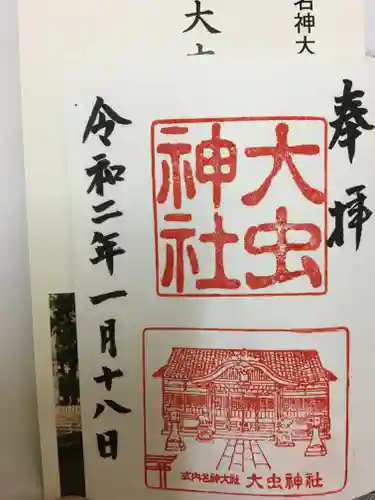 名神大
大
奉拝
大虫
神社
令和二年一月十八日
式内名神大社 大虫神社